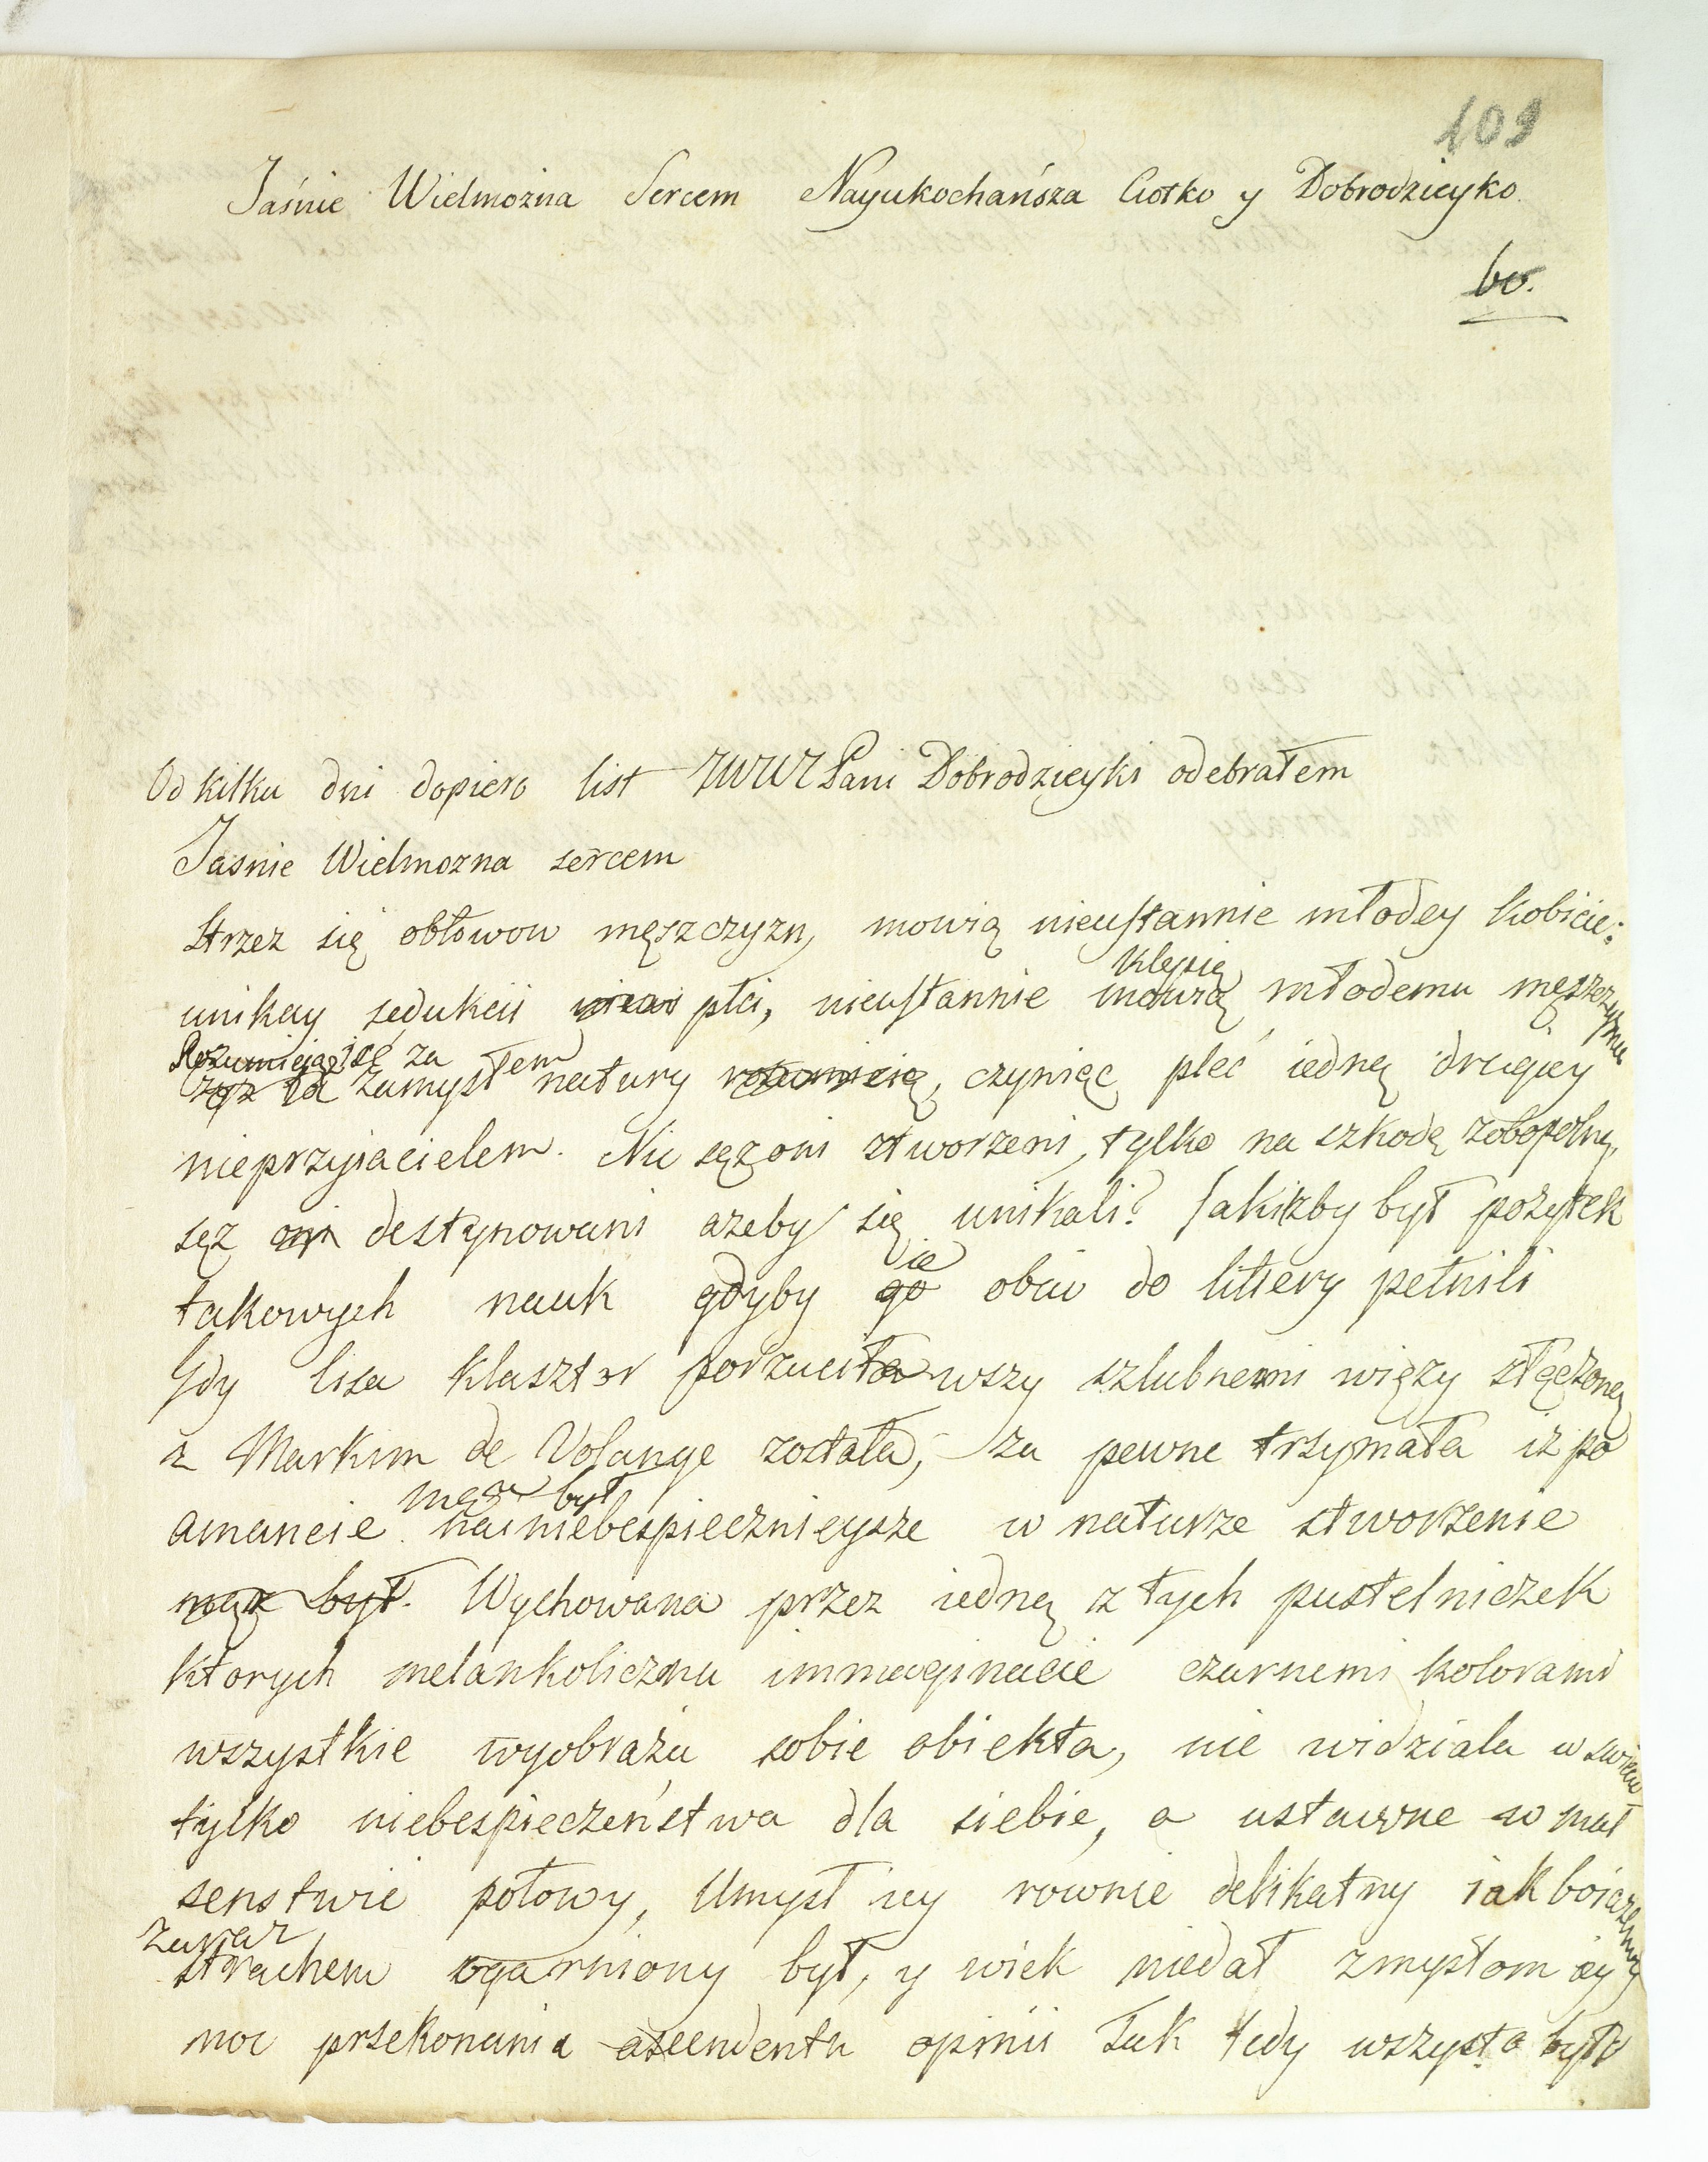 109
Jaśnie Wielmożna Sercem Nayukochańsza Ciotko y Dobrodzieyko.
bo.
Od kilku dni dopiero list JWWM Pani Dobrodzieyki odebrałem
Jasnie Wielmozna sercem
Strzez się obłowow męszczyzn, mowią nieustannie młodey kobicie:
klepią
unikay sedukcii płci, nieustannie mowią młodemu męszczyznie
Rozumieiąż ić za
ta zamysłem natury rozumieią, czyniąc płec iedną drugiey
nieprzyiacielem. Nie sąz oni stworzeni, tylko na szkodę zobopolną,
sąz oni destynowani azeby się unikali? Jakizby był pożytek
ie
takowych nauk gdyby go oboie do littery pełnili
Gdy Lisa klasztor porzuciławszy szlubnemi więzy złączoną
z Markim de Volange została, za pewne trzymała iz po
mąz był
amancie nainiebespiecznieysze w naturze stworzenie
mąz był. Wychowana przez iedną z tych pustelniczek
ktorych melankoliczna immaginacie czarnemi kolorami
wszystkie wyobraża sobie obiekta, nie widziala w swiecie
tylko niebespieczeństwa dla siebie, a ustawne w mał
senstwie połowy, Umysł iey rownie delikatny iak boiazliwy
zaraz
strachem ogarniony był, y wiek niedał zmysłom iey
moc przekonania ascendentu opinii Tak tedy wszysto było